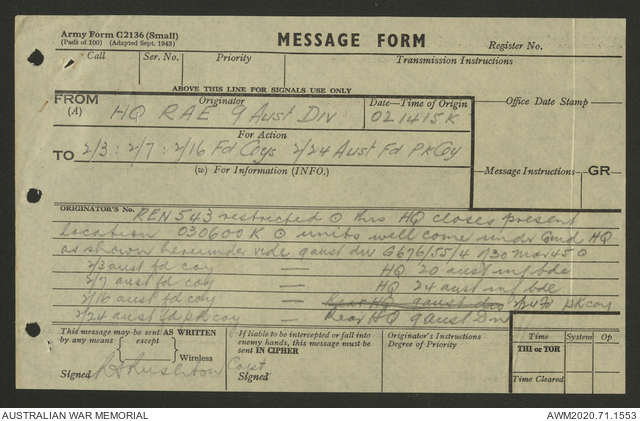 Army Form C2136 (Small)
(Pads of 100) (Adapted Sept. 1943)
MESSAGE FORM
Register No.
Call Ser. No. Priority Transmission Instructions
ABOVE THIS LINE FOR SIGNALS USE ONLY
FROM
(A)
Originator
HQ RAE 9 Aust Div
Date—Time of Origin
021415K
Office Date Stamp
For Action
TO 2/3 : 2/7 : 2/16 Fd Coys 2/24 Aust Fd PK Coy
(w) For Information (INFO.)
Message Instructions GR
ORIGINATOR'S No. REN 543 restricted ⊙ this HQ closes present
location 030600 K ⊙ units will come under Comd HQ
as shown hereunder vide 9 aust div G676/55/4 of 30 Mar 45 ⊙
2/3 aust fd coy — HQ 20 aust inf bde
2/7 aust fd coy — HQ 24 aust inf bde
2/16 aust fd coy — Rear HQ 9 aust div 2/24 Fd PK Coy
2/24 aust fd pk coy — Rear HQ 9 Aust Div
This message may be sent AS WRITTEN
by any means { except
} Wireless
Signed Capt
If liable to be intercepted or fall into
enemy hands, this message must be
sent IN CIPHER
Signed
Originator's Instructions
Degree of Priority
Time System Op
THI or TOR
Time Cleared
AUSTRALIAN WAR MEMORIAL
AWM2020.71.1553